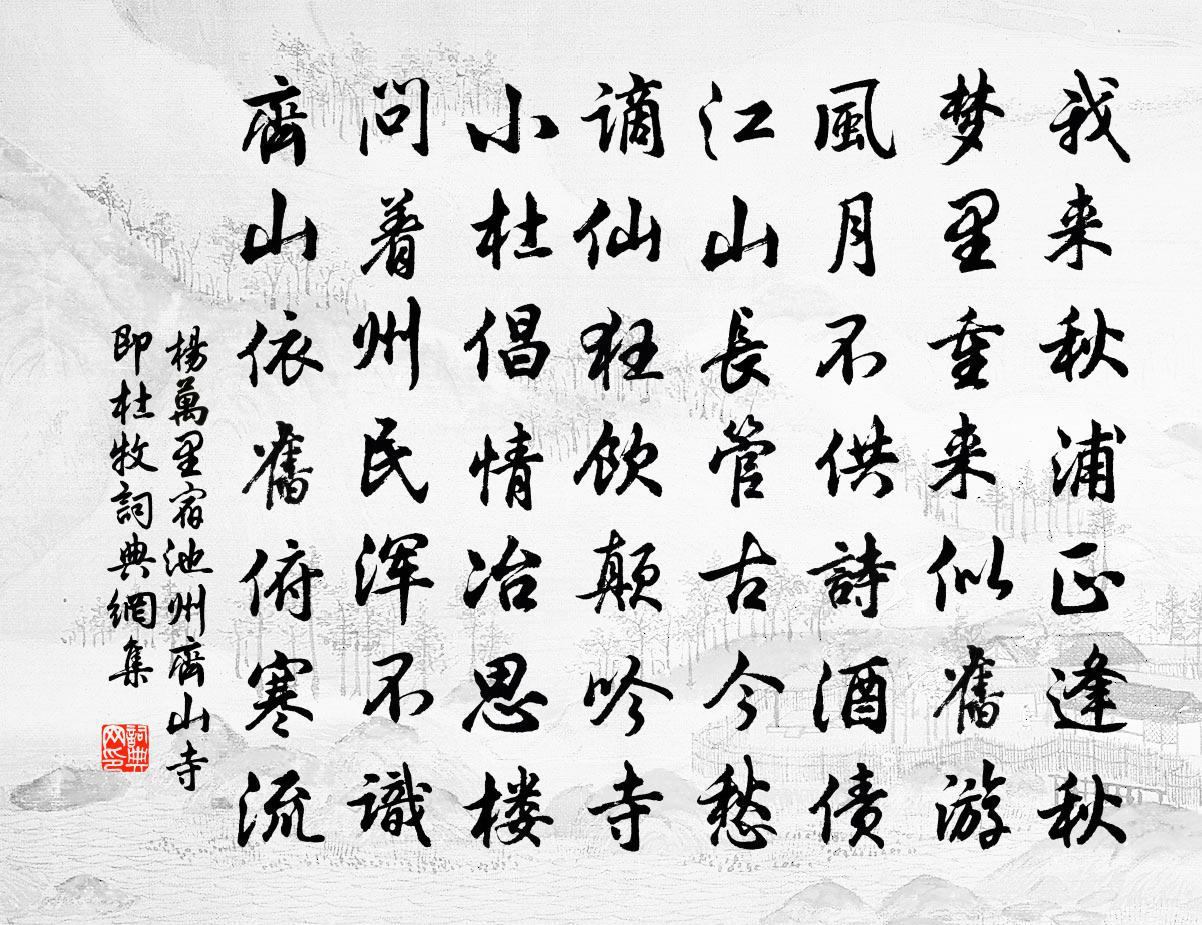 我来秋浦正逢秋
梦里重来似舊游
風月不供詩酒债
江山長管古今愁
谪仙狂饮颠吟寺
小杜倡情冶思楼
问着州民浑不識
齊山依舊俯寒流
楊萬里宿池州齊山寺
即杜牧詞典網集
詞典
网印